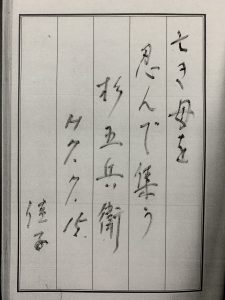 亡き母を
忍んで集う
杉五兵衛
H7.7.15.